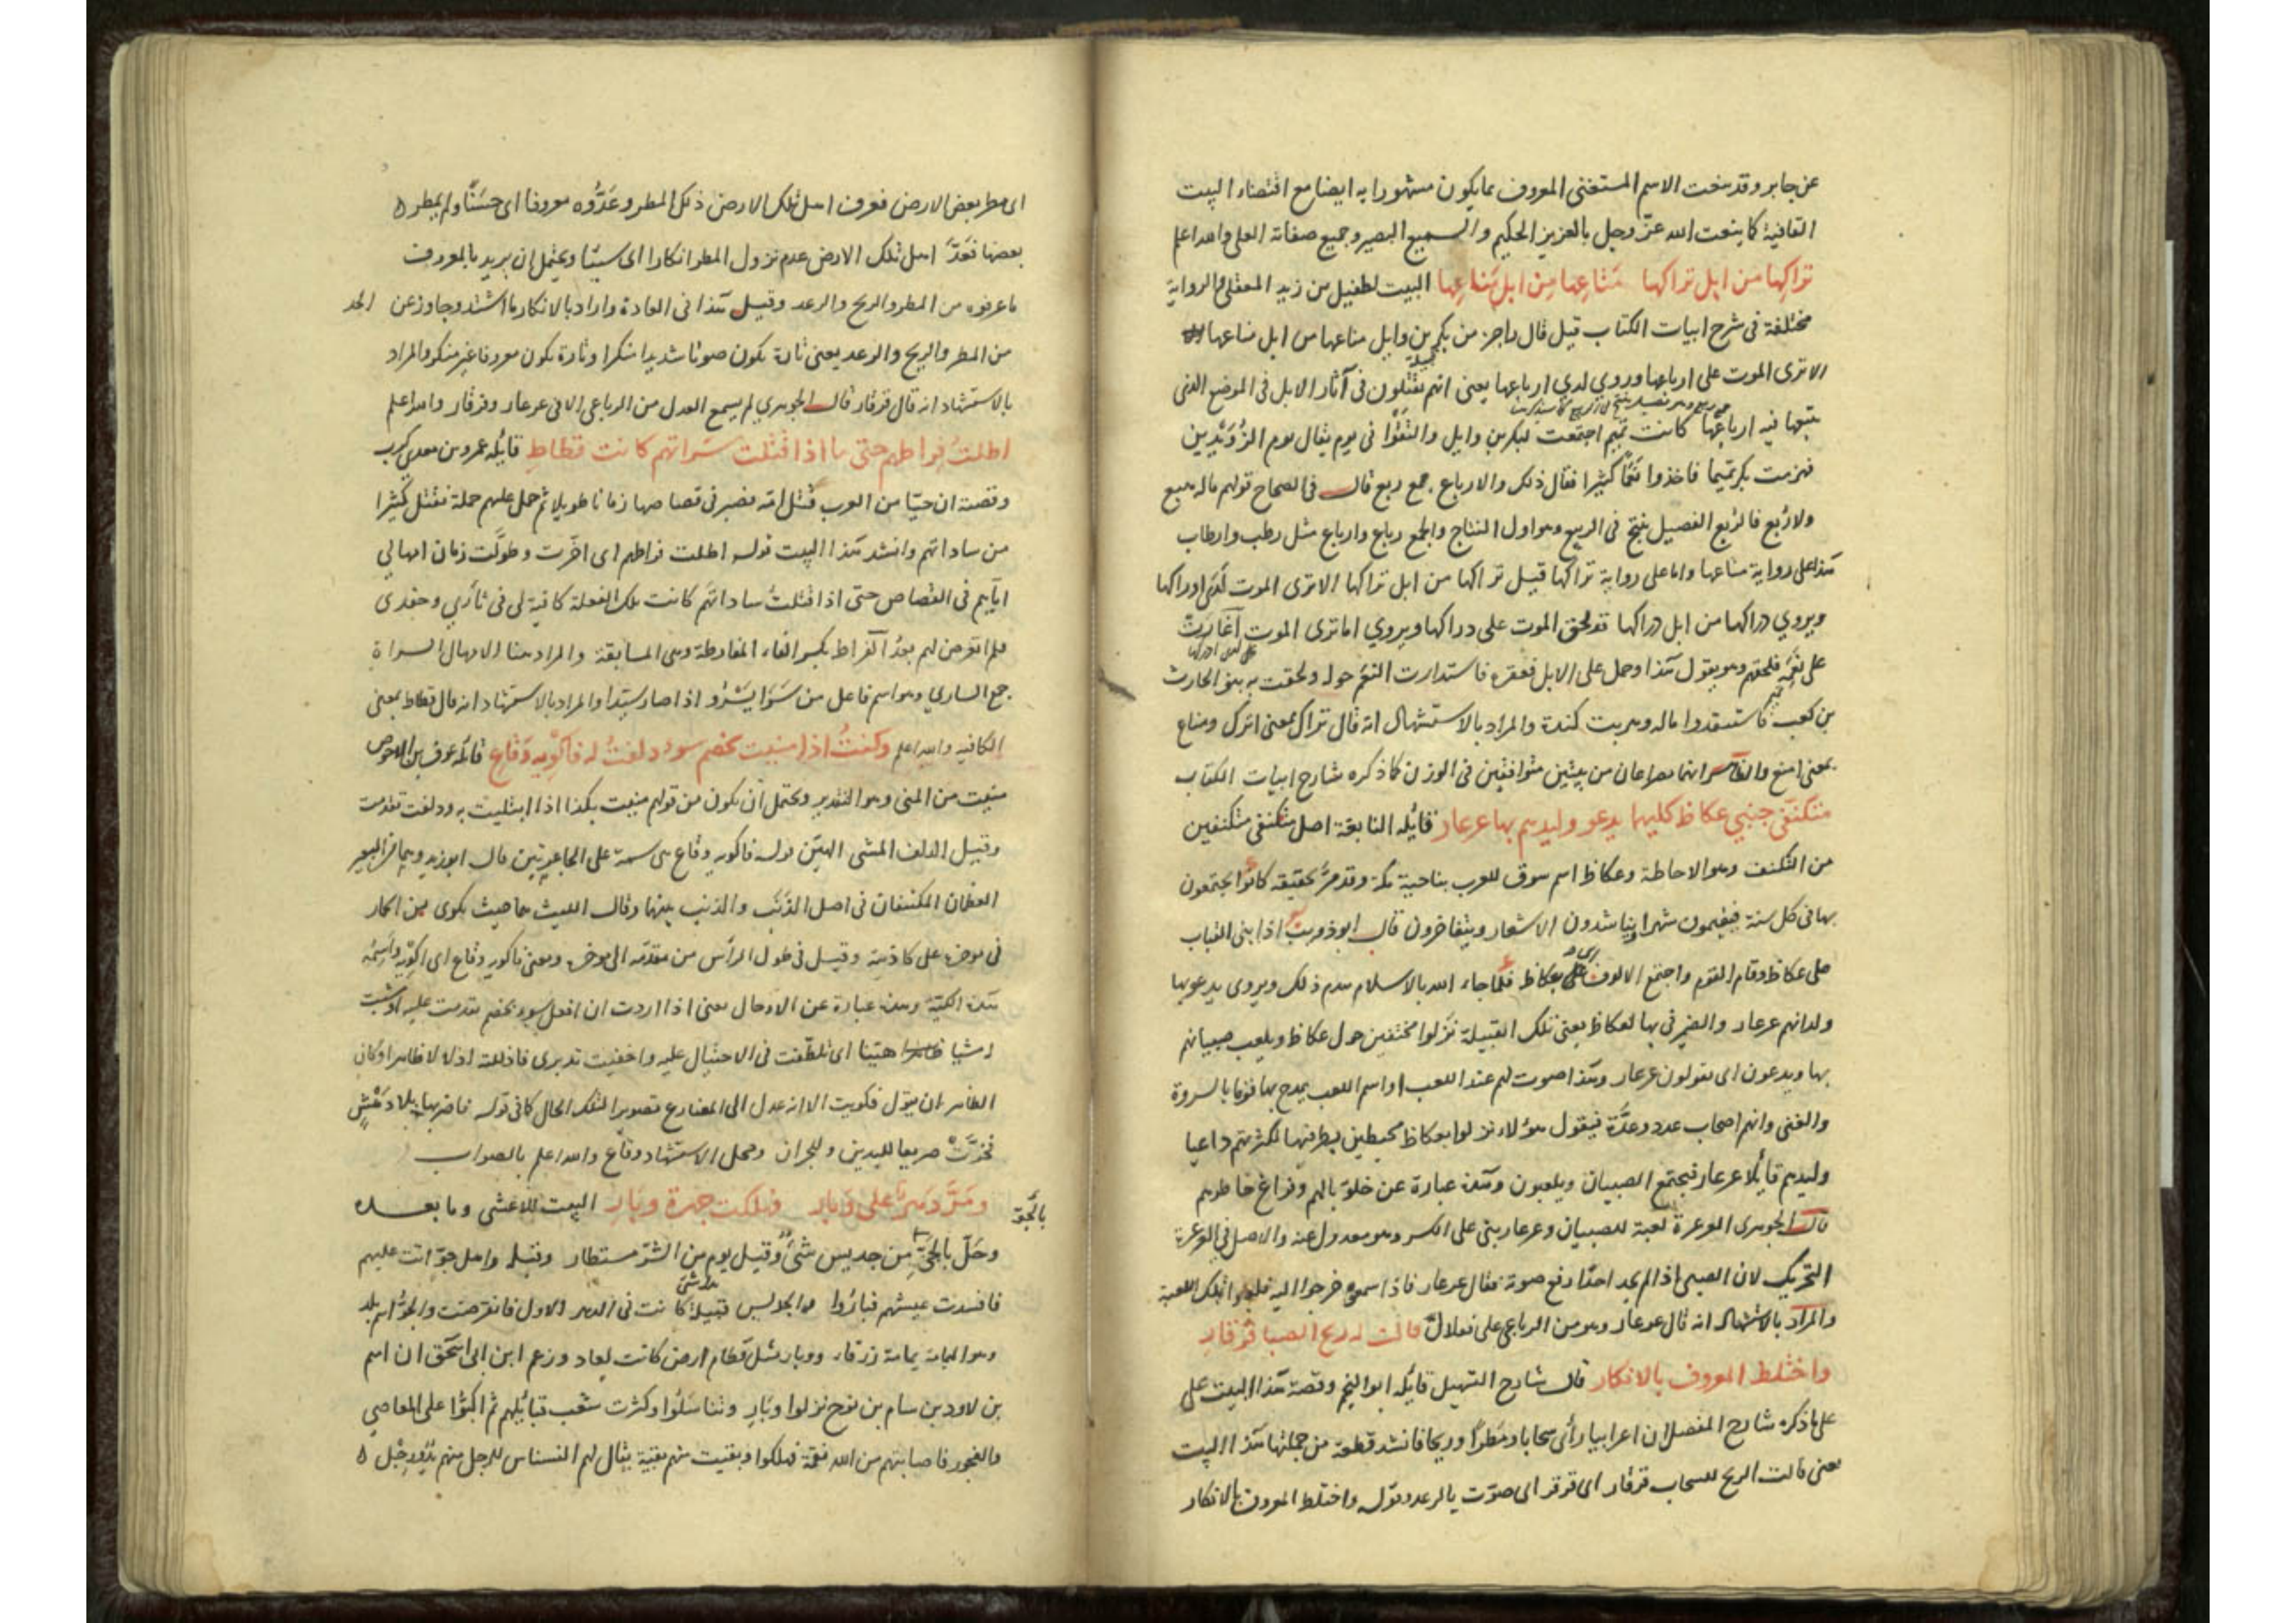 عن جابر وقد ينعت الاسم المستغنى المعروف بما يكون مشهورا به ايضا مع اقتضاء البيت
القافية كما ينعت الله عز وجل بالعزيز الحكيم والسميع البصير وجميع صفاته العلى والله اعلم
تراكها من ابل تراكها مناعها من ابل مناعها البيت لطفيل بن زيد المعقلى والرواية
مختلفة فى شرح ابيات الكتاب قيل قال راجز من بكر بن وايل مناعها من ابل مناعها
الا ترى الموت على ارباعها وروي لدي ارباعها يعنى انهم يقتلون فى آثار الابل فى الموضع الذى
يتبعها فيه ارباعها كانت تميم اجتمعت لبكر بن وايل والتقوا فى يوم يقال يوم الزويرين
فهزمت بكر تميما فاخذوا نعما كثيرا فقال ذلك والارباع جمع ربع قال فى الصحاح قولهم ماله هبع
ولا ربع فالربع الفصيل ينتج فى الربيع وهو اول النتاج والجمع رباع وارباع مثل رطب وارطاب
هذا على رواية مناعها واما على رواية تراكها قيل تراكها من ابل تراكها الا ترى الموت لدى اوراكها
ويروي دراكها من ابل دراكها قد لحق الموت على دراكها ويروي اما ترى الموت اغارت
على نعم فلحقهم وهو يقول هذا وحمل على الابل فعقره فاستدارت النعم حوله ولحقت به بنو الحارث
بن كعب فاستنقذوا ماله وهربت كندة والمراد بالاستشهاد انه قال تراك بمعنى اترك ومناع
بمعنى امنع والظاهر انهما مصراعان من بيتين متوافقين فى الوزن كما ذكره شارح ابيات الكتاب
متكنفى جنبي عكاظ كليهما يدعو وليدهم بها عرعار قائله النابغة اصل متكنفى متكنفين
من التكنف وهو الاحاطة وعكاظ اسم سوق للعرب بناحية مكة وقد مر تحقيقه كانوا يجتمعون
بها فى كل سنة فيقيمون شهرا ويتناشدون الاشعار ويتفاخرون قال ابو ذويب اذا بنى القباب
على عكاظ وقام القوم واجتمع الالوف على بعكاظ فلما جاء الله بالاسلام هدم ذلك ويروى يدعو بها
ولدانهم عرعار والضمير فى بها لعكاظ يعنى تلك القبيلة نزلوا مختفين حول عكاظ ويلعب صبيانهم
بها ويدعون اى يقولون عرعار وهذا صوت لهم عند اللعب او اسم اللعب يمدح بها قوما بالسروة
والغنى وانهم اصحاب عدد وعدة فيقول هؤلاء نزلوا بعكاظ محيطين بطرفيها لكثرتهم داعيا
وليدهم قايلا عرعار فيجتمع الصبيان ويلعبون وهذه عبارة عن خلو بالهم وفراغ خاطرهم
قال الجوهرى العرعرة لعبة للصبيان وعرعار بنى على الكسر وهو معدول عنه والاصل فى العرعرة
التحريك لان الصبى اذا لم يجد احدا رفع صوته فقال عرعار فاذا سمعوه خرجوا اليه فلعبوا تلك اللعبة
والمراد بالاستشهاد انه قال عرعار وهو من الرباعي على فعلال قالت له ريح الصبا قرقار
واختلط المعروف بالانكار قال شارح التسهيل قائله ابو النجم وقصة هذا البيت على
على ما ذكره شارح المفصل ان اعرابيا رأى سحابا ومطرا وريحا فانشد قطعة من جملتها هذا البيت
يعنى قالت الريح للسحاب قرقار اى قرقر اى صوت بالرعد وقوله واختلط المعروف بالانكار
اى مطر بعض الارض فعرف اهل تلك الارض ذلك المطر وعدوه معروفا اى حسنا ولم يمطر
بعضها فعد اهل تلك الارض عدم نزول المطر انكارا اى سيئا ويحتمل ان يريد بالمعروف
ما عرفوه من المطر والريح والرعد وقيل هذا فى العادة واراد بالانكار ما اشتد وجاوز عن الحد
من المطر والريح والرعد يعنى تارة يكون صوتا شديدا منكرا وتارة يكون معروفا غير منكر والمراد
بالاستشهاد انه قال قرقار قال الجوهري لم يسمع العدل من الرباعى الا فى عرعار وقرقار والله اعلم
اطلت فراطهم حتى ما اذا قتلت سراتهم كانت قطاط قائله عمرو بن معدي كرب
وقصته ان حيا من العرب قتل امه فصبر فى قصاصها زمانا طويلا ثم حمل عليهم حملة فقتل كثيرا
من ساداتهم وانشد هذا البيت قوله اطلت فراطهم اى اخرت وطولت زمان امهالي
اياهم فى القصاص حتى اذا قتلت ساداتهم كانت تلك الفعلة كافية لى فى ثأري وحقدى
فلم اتعرض لهم بعد الفراط بكسر الفاء المفارطة وهى المسابقة والمراد هنا الامهال السراة
جمع الساري وهو اسم فاعل من سرا يسرو اذا صار سيدا والمراد بالاستشهاد انه قال قطاط بمعنى
الكافية والله اعلم وكنت اذا منيت بخصم سوء دلفت له فاكويه وقاع قائله عوف بن الاحوص
منيت من المنى وهو التقدير ويحتمل ان يكون من قولهم منيت بكذا اذا ابتليت به ودلفت تقدمت
وقيل الدلف المشى الهين قوله فاكويه وقاع هى سمة على الجاعرتين قال ابو زيد وهما من البعير
العظمان المكتنفان فى اصل الذنب والذنب بينهما وقال الليث هما حيث يكوى من الحمار
فى موخره على كاذتيه وقيل فى طول الرأس من مقدمه الى موخره ومعنى فاكويه وقاع اى اكويه واسمه
هذه الكية وهذه عبارة عن الاذلال يعنى اذا اردت ان افعل سوء بخصم تقدمت عليه او مشيت
مشيا هينا اى تلطفت فى الاحتيال عليه واخفيت تدبيرى فاذللته اذلالا ظاهرا وكان
الظاهر ان يقول فكويت الا انه عدل الى المضارع تصويرا لتلك الحال كما فى قوله فاضربها بلا دهش
فخرت صريعا لليدين وللجران ومحل الاستشهاد وقاع والله اعلم بالصواب
ومر دهر على وبار فهلكت جهرة وبار البيت للاعشى وما بعده
وحل بالحي من جديس شئ وقيل يوم من الشر مستطار وقبله واهل جو اتت عليهم
فافسدت عيشهم فباروا جديس قبيلة كانت فى الدهر الاول فانقرضت والجو اسم بلد
وهو اليمامة يمامة زرقاء ووبار مثل قطام ارض كانت لعاد وزعم ابن ابى اسحق ان اسم
بن لاود بن سام بن نوح نزلوا وبار وتناسلوا وكثرت شعب قبايلهم ثم اكبوا على المعاصي
والفجور فاصابتهم من الله نقمة فهلكوا وبقيت منهم بقية يقال لهم النسناس للرجل منهم يد ورجل